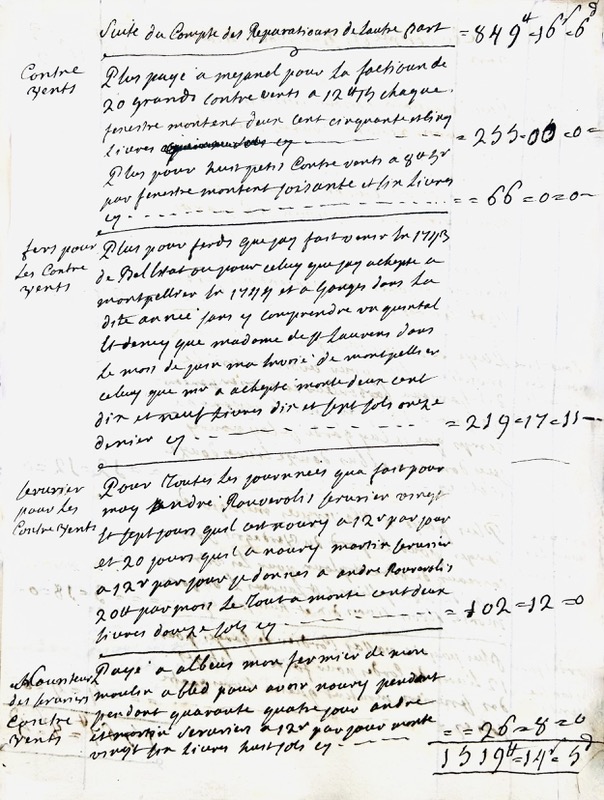 Suitte du Compte des Reparatiouns de Lautre Part = 849ᵗᵗ=16ˢ=6ᵈ
Contre
vents
Plus payé a mejanel pour La factioun de
20 grands contre vents a 12ᵗᵗ15 chaque
fenestre montent deux cent cinquante et cinq
Livres cy = 255=00=0=
Plus pour huit petis Contre vents a 8ᵗᵗ5ˢ
par fenestre montent soisante et six Livres
cy = = 66=0=0-
fers pour
Les Contre
vents
Plus pour ferds que jay fait venir In 1743
de ou pour celuy que jay achepté a
montpellier In 1744 et a Ganges dans La
dite année sans y comprendre un quintal
Et demy que madame de St Laurens dans
Le mois de juin ma Invoié de montpellier
celuy que mr a achepté monte deux cent
dix et neuf Livres dix et sept sols onze
denier cy = 219=17=11-
serurier
pour Les
Contre vents
Pour Toutes Les journnees qua fait pour
moy andré Rouverolis serurier vingt
et sept jours quil cest noury a 12ˢ par jour
et 20 jours quil a noury martin serurier
a 12ˢ par jour je donnes a andre Rouverolis
20ᵗᵗ par mois Le Tout a monte cent deux
Livres douze sols cy = 102=12=0
Nouriture
des seruriers
Contre
vents
Payé a albous mon fermier de mon
moulin a bled pour avoir noury pendant
pendant quarante quatre jour andre
et martin seruriers a 12ˢ par jour monte
vingt six Livres huit sols cy = = 26=8=0
1519ᵗᵗ=14ˢ=5ᵈ